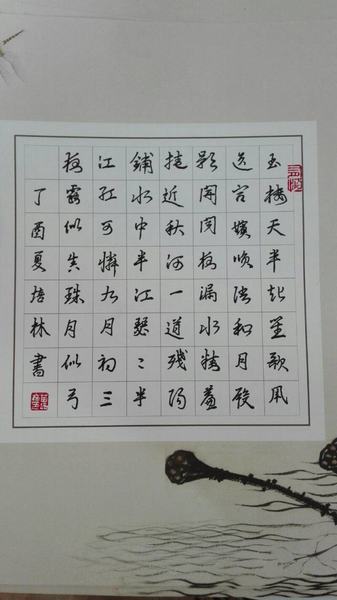 玉楼天半起笙歌风
送宫嫔顺语和月殿
影開闻夜漏水精帘
捲近秋河一道残阳
铺水中半江瑟〻半
江红可怜九月初三
夜露似真珠月似弓
丁酉夏培林書